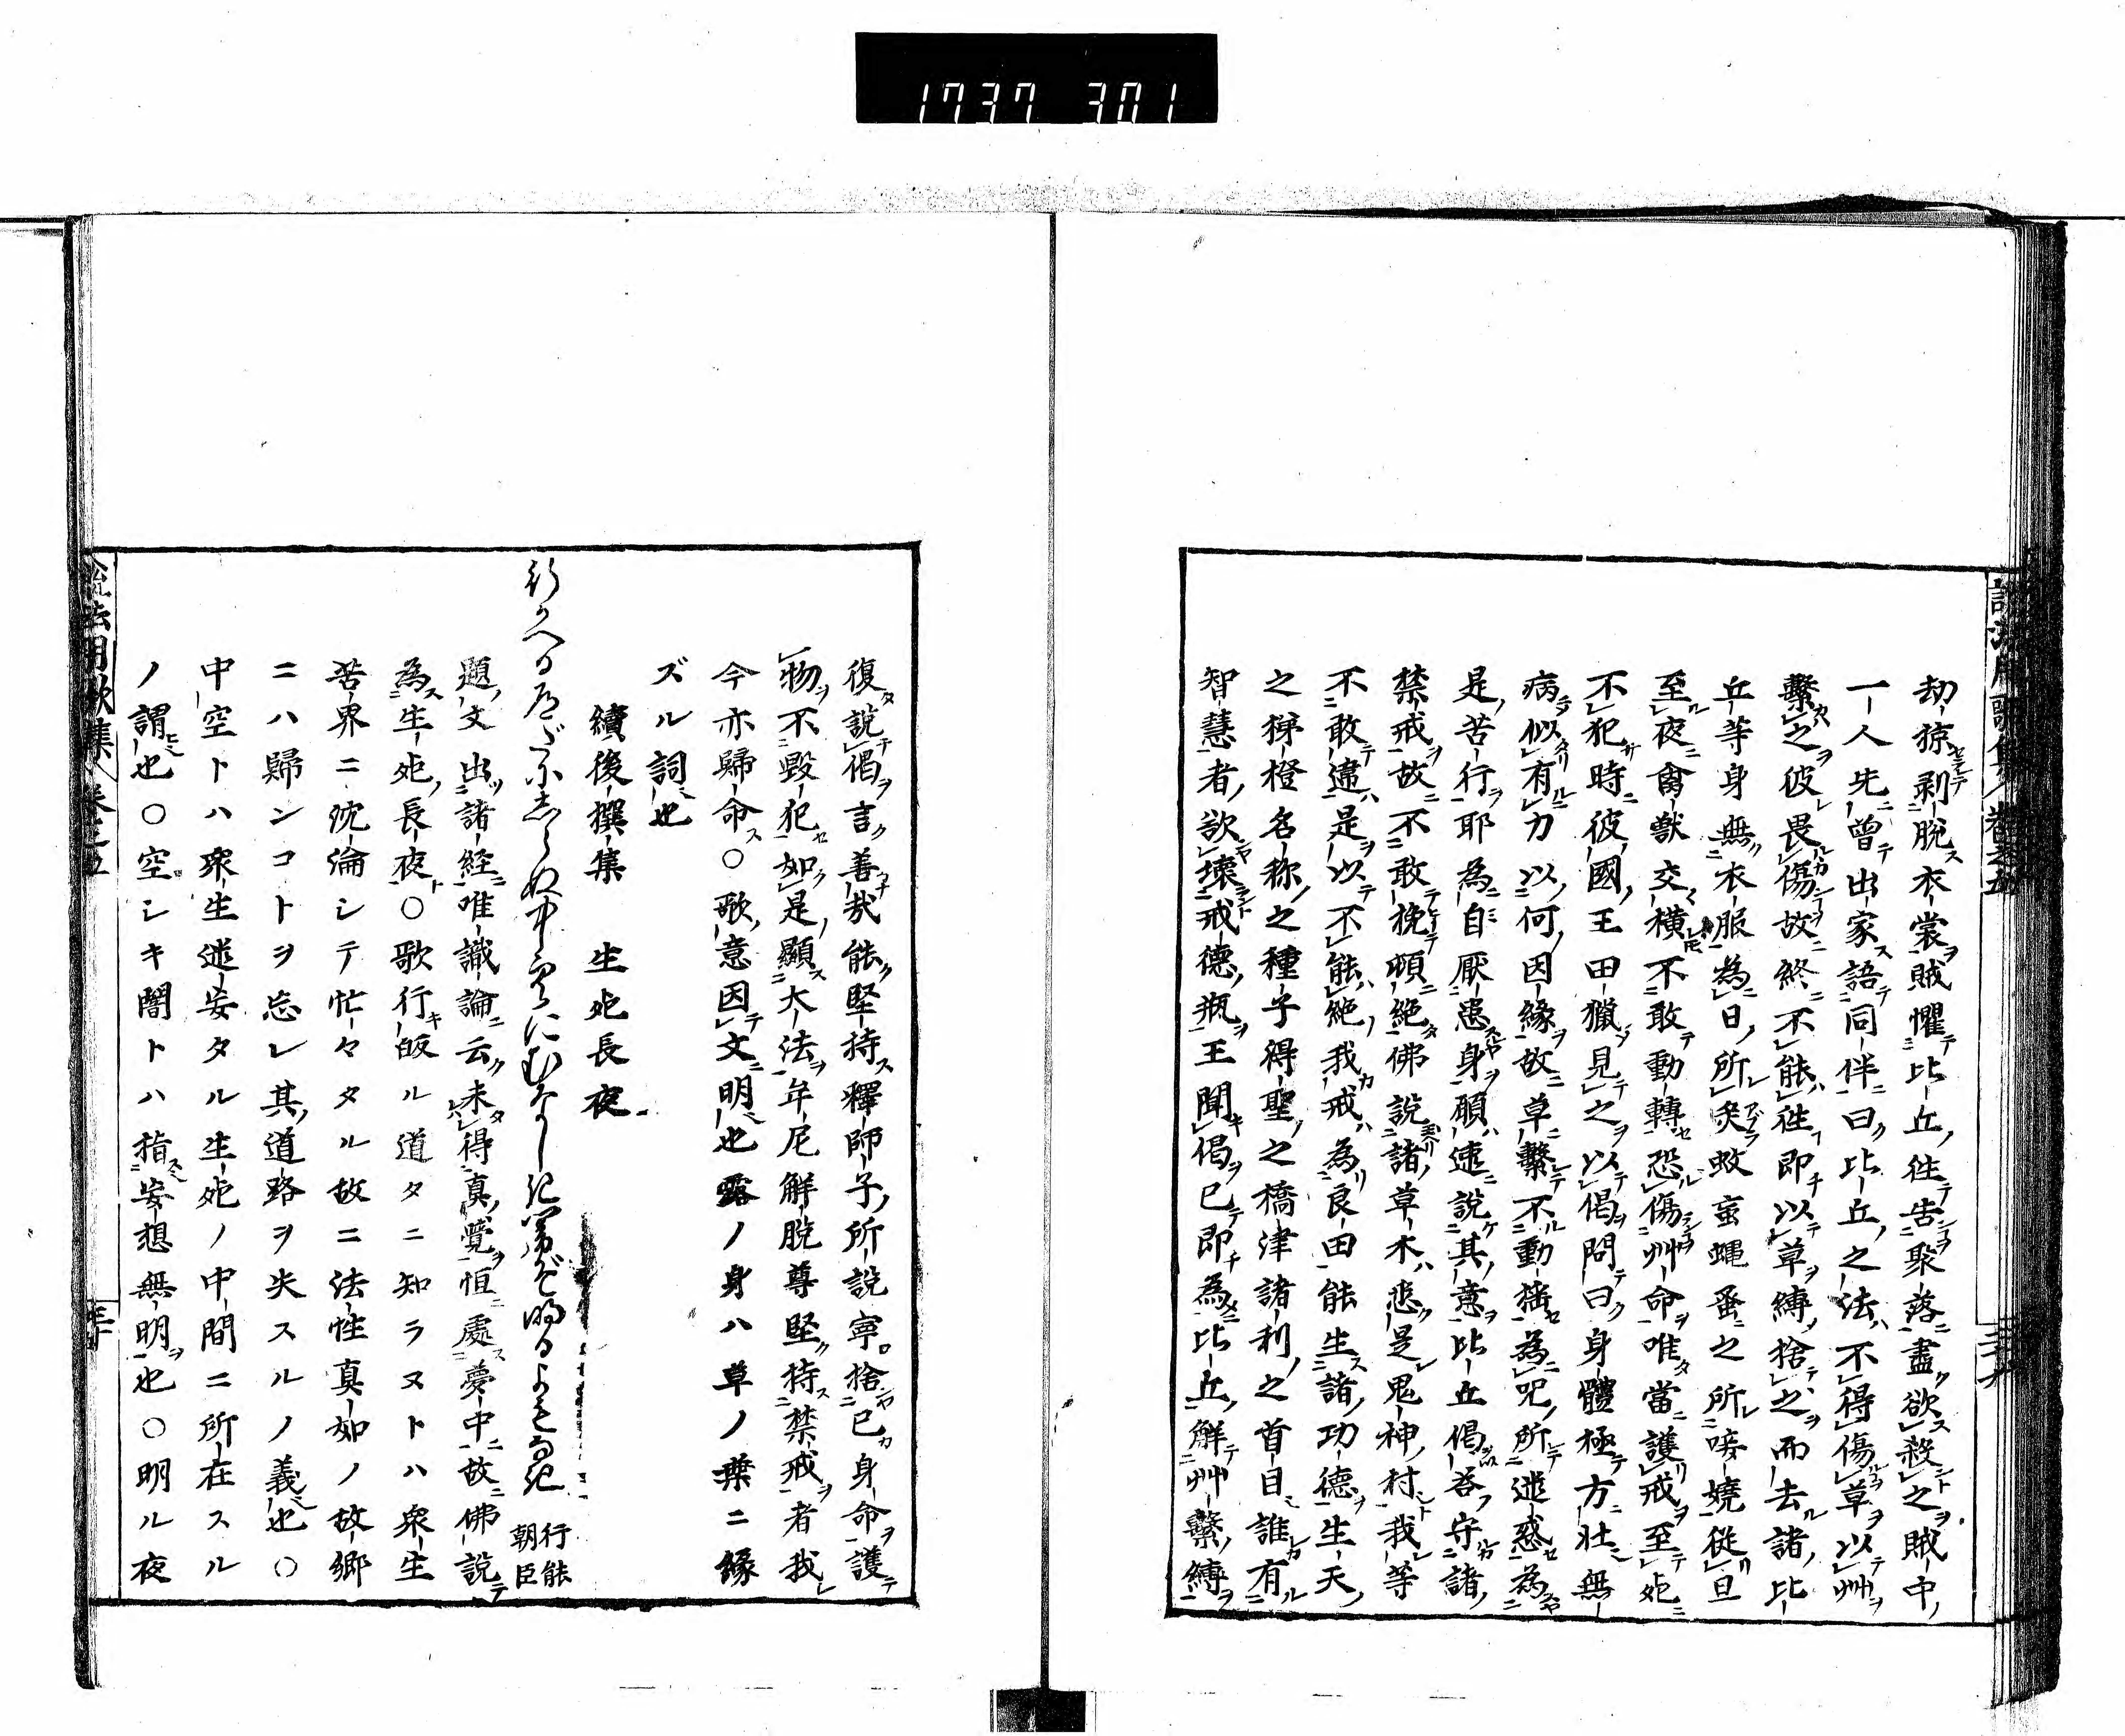 1737 301
劫掠剥脱衣裳賊懼比丘往告聚落盡欲殺之賊中
一人先曽出家語同伴曰比丘之法不得傷草以艸
繫之彼畏傷故終不能往即以草縛捨之而去諸比
丘等身無衣服為日所炙蚊䖟蠅蚤之所唼嬈從旦
至夜禽獣交横不敢動轉恐傷艸命唯當護戒至死
不犯時彼國王田獵見之以偈問曰身體極方壮無
病似有力以何因縁故草繫不動揺為呪所迷惑為
是苦行耶為自厭患身願速説其意比丘偈答守諸
禁戒故不敢挽頓絶佛説諸草木悉是鬼神村我等
不敢違是以不能絶我戒為良田能生諸功徳生天
之梯橙名称之種子得聖之橋津諸利之首目誰有
智慧者欲壊戒徳瓶王聞偈已即為比丘解艸繫縛
復説偈言善哉能堅持釋師子所説寧捨已身命護
物不毀犯如是顯大法牟尼解脱尊堅持禁戒者我
今亦歸命○歌意因文明也露ノ身ハ草ノ葉ニ縁
ズル詞也
續後撰集　生死長夜
行かへる道だにしらぬ中空にむなしき闇ぞ明るよもなき　行能朝臣
題文出諸経唯識論云未得真覺恒處夢中故佛説
為生死長夜○歌行皈ル道タニ知ラヌトハ衆生
苦界ニ沈淪シテ忙々タル故ニ法性真如ノ故郷
ニハ歸ンコトヲ忘レ其道路ヲ失スルノ義也○
中空トハ衆生迷妄タル生死ノ中間ニ所在スル
ノ謂也○空シキ闇トハ指妄想無明也○明ル夜